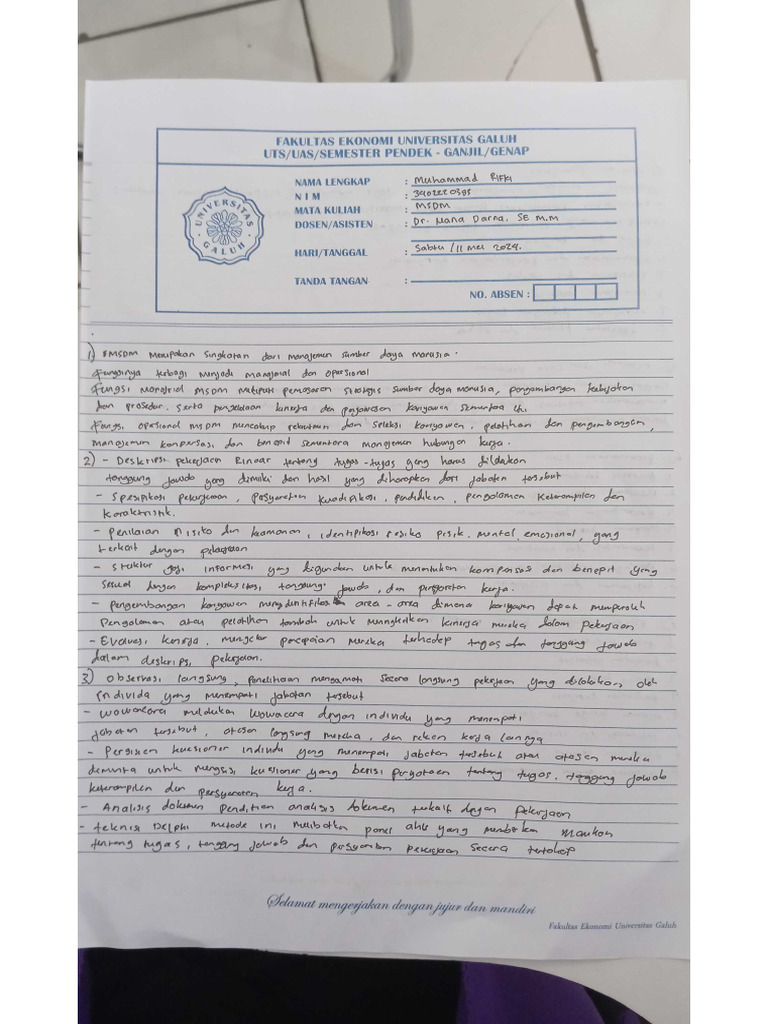 FAKULTAS EKONOMI UNIVERSITAS GALUH
UTS/UAS/SEMESTER PENDEK - GANJIL/GENAP
UNIVERSITAS GALUH
NAMA LENGKAP : Muhammad Rifki
N I M : 3402220395
MATA KULIAH : MSDM
DOSEN/ASISTEN : Dr. Nana Darna. SE M.M
HARI/TANGGAL : Sabtu / 11 Mei 2024.
TANDA TANGAN :
NO. ABSEN :
1) MSDM Merupakan Singkatan dari manajemen sumber daya manusia.
Fungsinya terbagi menjadi manajerial dan operasional
Fungsi Manajerial MSDM meliputi strategis sumber daya manusia, pengembangan kebijakan
dan prosedur. serta pengelolaan kinerja dan karyawan sementara itu
Fungsi operasional MSDM mencakup rekrutmen dan seleksi karyawan, pelatihan dan pengembangan,
manajemen kompensasi, dan benefit sementara manajemen hubungan kerja.
2) - Deskripsi pekerjaan Rincian tentang tugas-tugas yang harus dilakukan
tanggung jawab yang dimiliki dan hasil yang diharapkan dari jabatan tersebut
- Spesifikasi pekerjaan, persyaratan kualifikasi, pendidikan, pengalaman keterampilan dan
karakteristik.
- penilaian Risiko dan keamanan, identifikasi resiko fisik. mental, emosional, yang
terkait dengan pekerjaan
- struktur gaji informasi yang digunakan untuk menentukan kompensasi dan benefit yang
sesuai dengan kompleksitas, tanggung jawab, dan kerja.
- pengembangan karyawan mengidentifikasi area-area dimana karyawan dapat memperoleh
Pengalaman atau pelatihan tambah untuk meningkatkan kinerja mereka dalam Pekerjaan
- Evaluasi kinerja, mengukur pencapaian mereka terhadap tugas dan tanggung jawab
dalam deskripsi pekerjaan.
3) Observasi langsung, mengamati secara langsung pekerjaan yang dilakukan oleh
individu yang menempati jabatan tersebut
- wawancara melakukan wawancara dengan individu yang menempati
jabatan tersebut, atasan langsung mereka, dan rekan kerja lainnya
- Pengisian kuesioner individu yang menempati jabatan tersebut atau atasan mereka
diminta untuk mengisi kuesioner yang berisi tentang tugas, tanggung jawab
keterampilan dan persyaratan kerja.
- Analisis dokumen analisis dokumen terkait dengan pekerjaan
- teknik Delphi metode ini melibatkan panel ahli yang memberikan masukan
tentang tugas, tanggung jawab dan persyaratan pekerjaan secara
Selamat mengerjakan dengan jujur dan mandiri
Fakultas Ekonomi Universitas Galuh